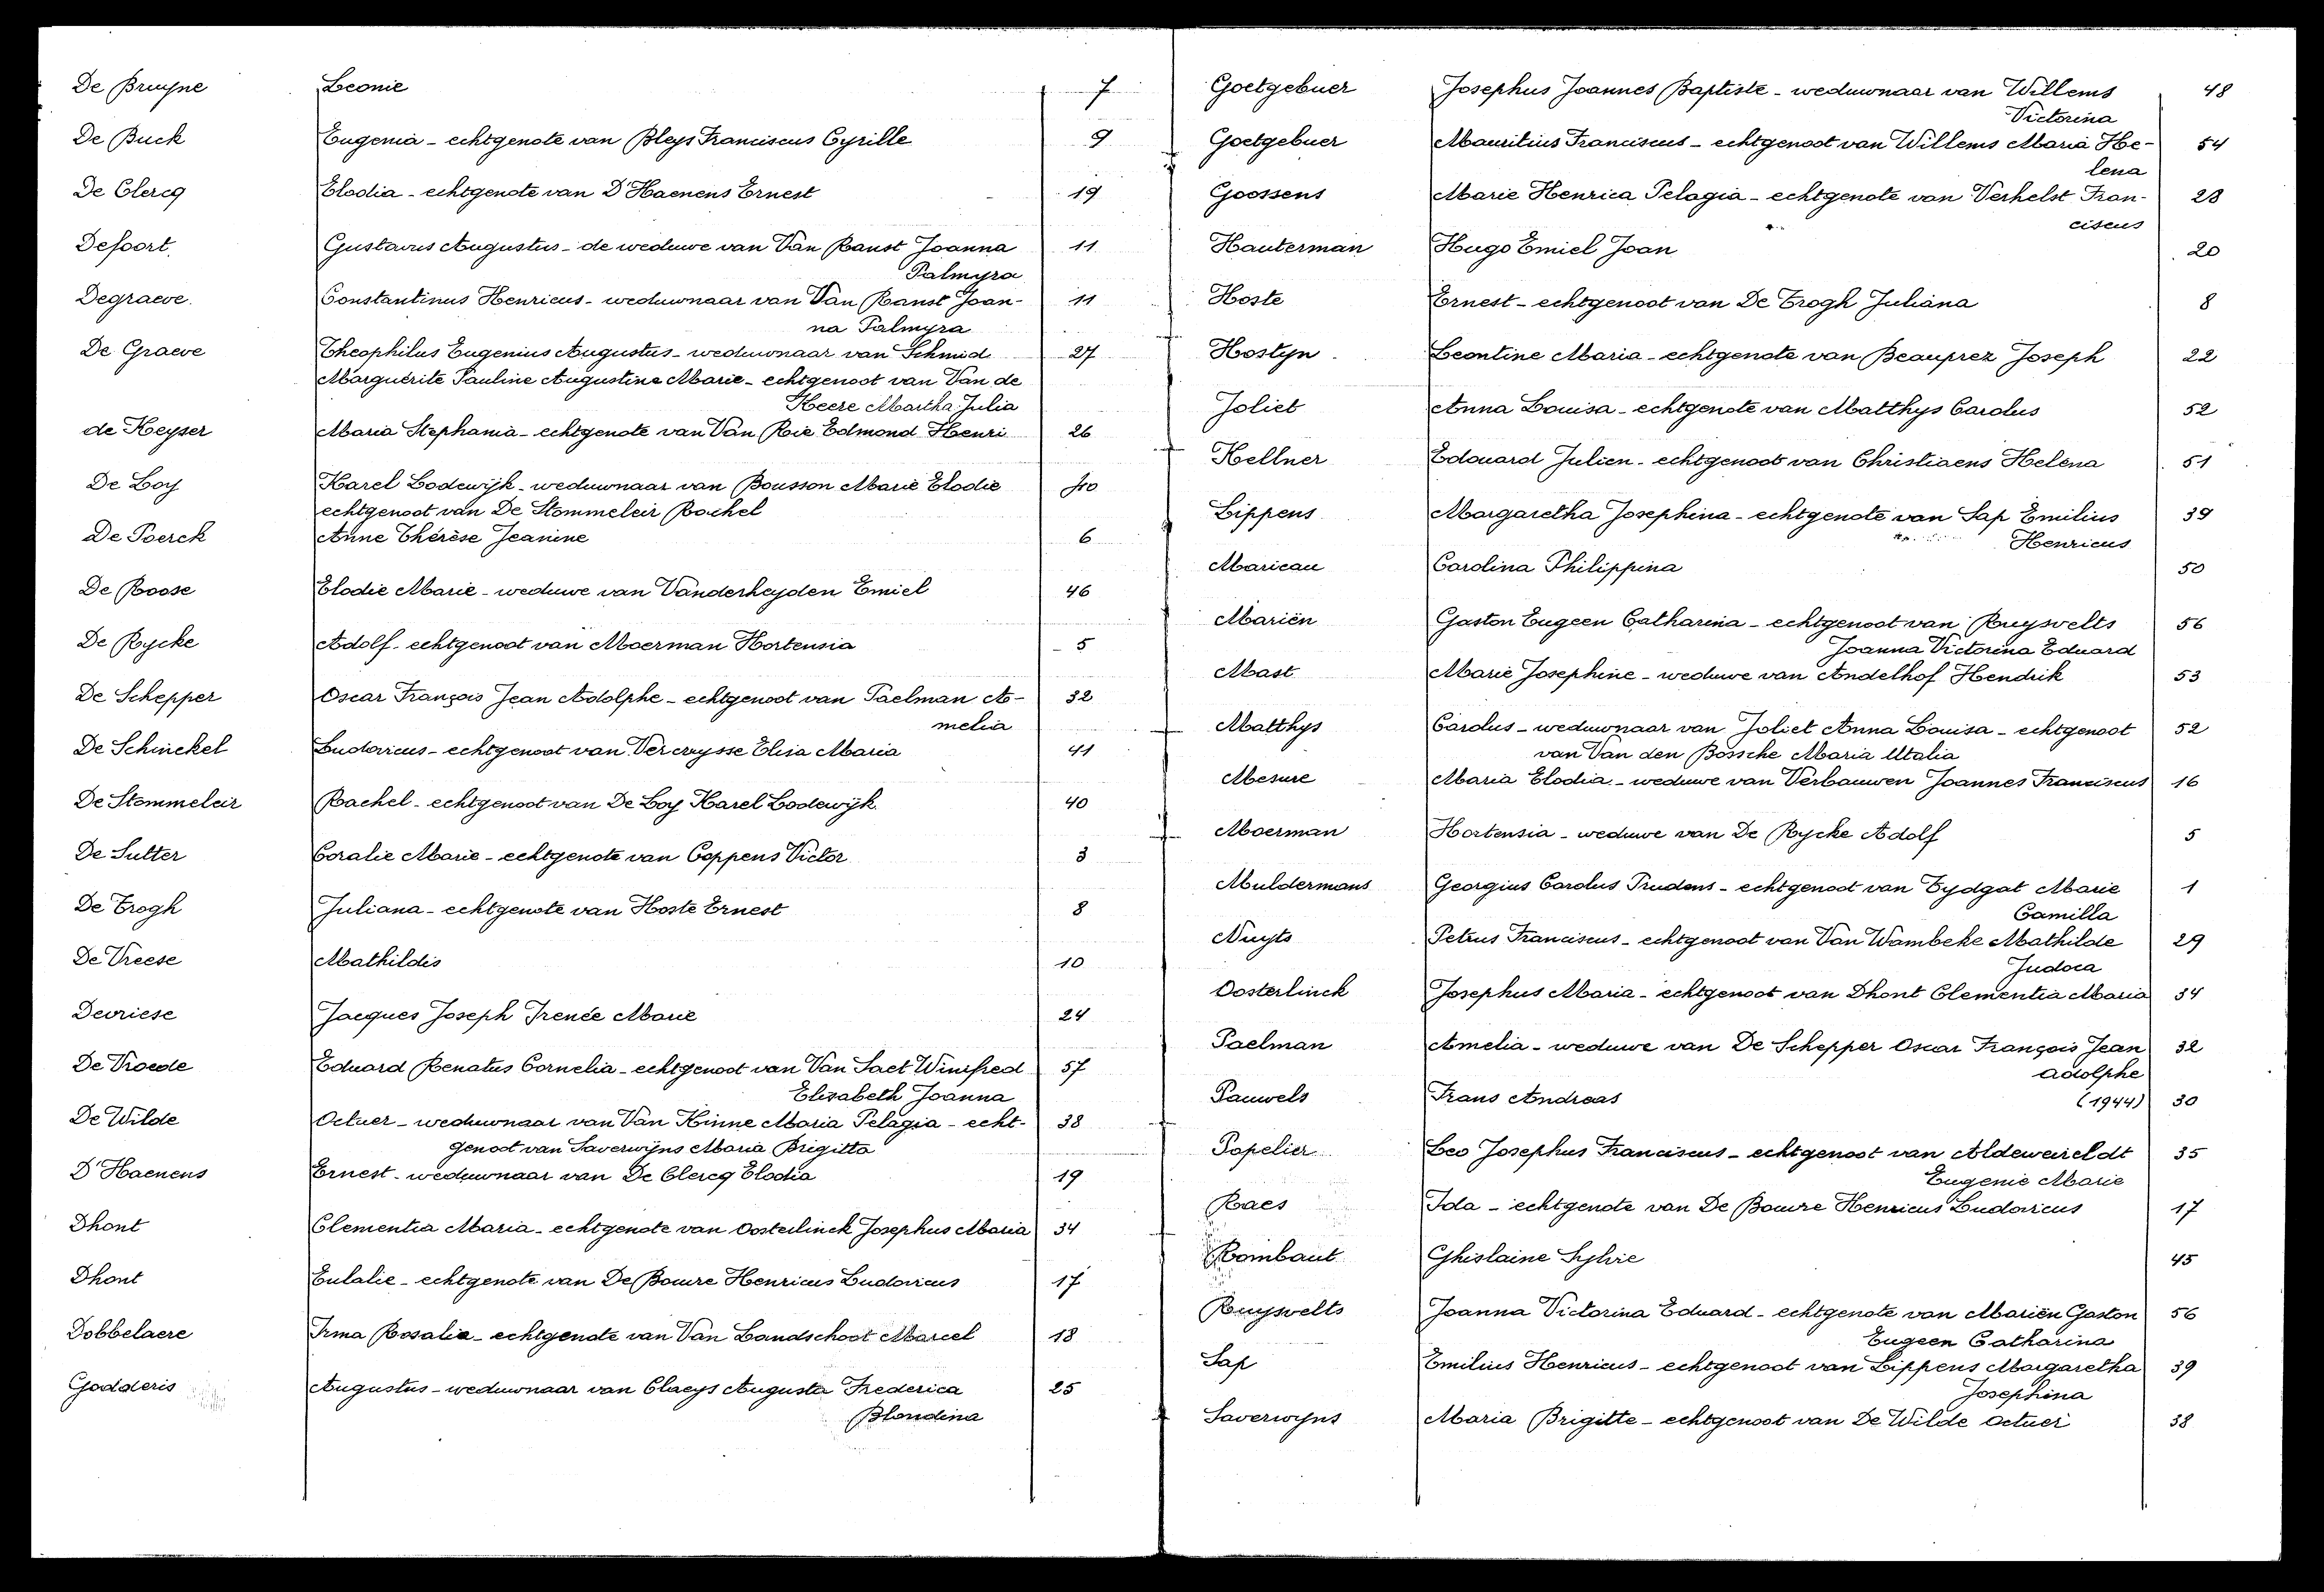 De Bruyne Leonie 7
De Buck Eugenia - echtgenote van Bleys Franciscus Cyrille 9
De Clercq Elodia - echtgenote van D'Haenens Ernest 19
Defoort. Gustavus Augustus - de weduwe van Van Ranst Joanna 11
Palmyra
Degraeve. Constantinus Henricus - weduwnaar van Van Ranst Joan- 11
na Palmyra
De Graeve Theophilus Eugenius Augustus - weduwnaar van Schmid 27
Marguérite Pauline Augustine Marie - echtgenoot van Van de
Keere Martha Julia
de Keyser Maria Stephania - echtgenote van Van Rie Edmond Henri 26
De Loy Karel Lodewijk - weduwnaar van Bousson Marie Elodie 40
echtgenoot van De Stommeleir Rachel
De Poerck Anne Thérèse Jeanine 6
De Roose Elodie Marie - weduwe van Vanderheyden Emiel 46
De Rycke Adolf - echtgenoot van Moerman Hortensia 5
De Schepper Oscar François Jean Adolphe - echtgenoot van Paelman A- 32
melia
De Schinckel Ludovicus - echtgenoot van Vercruysse Elisa Maria 41
De Stommeleir Rachel - echtgenoot van De Loy Karel Lodewijk. 40
De Sutter Coralie Marie - echtgenote van Coppens Victor 3
De Trogh Juliana - echtgenote van Hoste Ernest 8
De Vreese Mathildis 10
Devriese Jacques Joseph Irenée Marie 24
De Vroede Eduard Renatus Cornelia - echtgenoot van Van Sact Winefred 57
Elisabeth Joanna
De Wilde Octuer - weduwnaar van Van Hinne Maria Pelagia - echt- 38
genoot van Saverwijns Maria Brigitta
D'Haenens Ernest - weduwnaar van De Clercq Elodia 19
Dhont Clementia Maria - echtgenote van Oosterlinck Josephus Maria 34
Dhont Eulalie - echtgenote van De Bouvre Henricus Ludovicus 17
Dobbelaere Irma Rosalia - echtgenote van Van Landschoot Marcel 18
Godderis Augustus - weduwnaar van Claeys Augusta Frederica 25
Blondina
Goetgebuer Josephus Joannes Baptiste - weduwnaar van Willems 48
Victorina
Goetgebuer Mauritius Franciscus - echtgenoot van Willems Maria He- 54
lena
Goossens Marie Henrica Pelagia - echtgenote van Verhelst Fran- 23
ciscus
Hauterman Hugo Emiel Joan 20
Hoste Ernest - echtgenoot van De Trogh Juliana 8
Hostyn Leontine Maria - echtgenote van Beauprez Joseph 22
Joliet Anna Louisa - echtgenote van Matthys Carolus 52
Kellner Edouard Julien - echtgenoot van Christiaens Helena 51
Lippens Margaretha Josephina - echtgenote van Sap Emilius 39
Henricus
Maricau Carolina Philippina 50
Mariën Gaston Eugeen Catharina - echtgenoot van Ruysvelts 56
Joanna Victorina Eduard
Mast Marie Josephine - weduwe van Andelhof Hendrik 53
Matthys Carolus - weduwnaar van Joliet Anna Louisa - echtgenoot 52
van Van den Bossche Maria Utalia
Mesure Maria Elodia - weduwe van Verbauwen Joannes Franciscus 16
Moerman Hortensia - weduwe van De Rycke Adolf 5
Muldermans Georgius Carolus Prudens - echtgenoot van Tydgat Marie 1
Camilla
Nuyts Petrus Franciscus - echtgenoot van Van Wambeke Mathilde 29
Judoca
Oosterlinck Josephus Maria - echtgenoot van Dhont Clementia Maria 34
Paelman Amelia - weduwe van De Schepper Oscar François Jean 32
Adolphe
Pauwels Frans Andreas (1944) 30
Popelier Leo Josephus Franciscus - echtgenoot van Aldeweireldt 35
Eugenie Marie
Raes Ida - echtgenote van De Bouvre Henricus Ludovicus 17
Rombaut Ghislaine Sylvie 45
Ruysvelts Joanna Victorina Eduard - echtgenote van Mariën Gaston 56
Eugeen Catharina
Sap Emilius Henricus - echtgenoot van Lippens Margaretha 39
Josephina
Saverwyns Maria Brigitte - echtgenoot van De Wilde Octuer 38